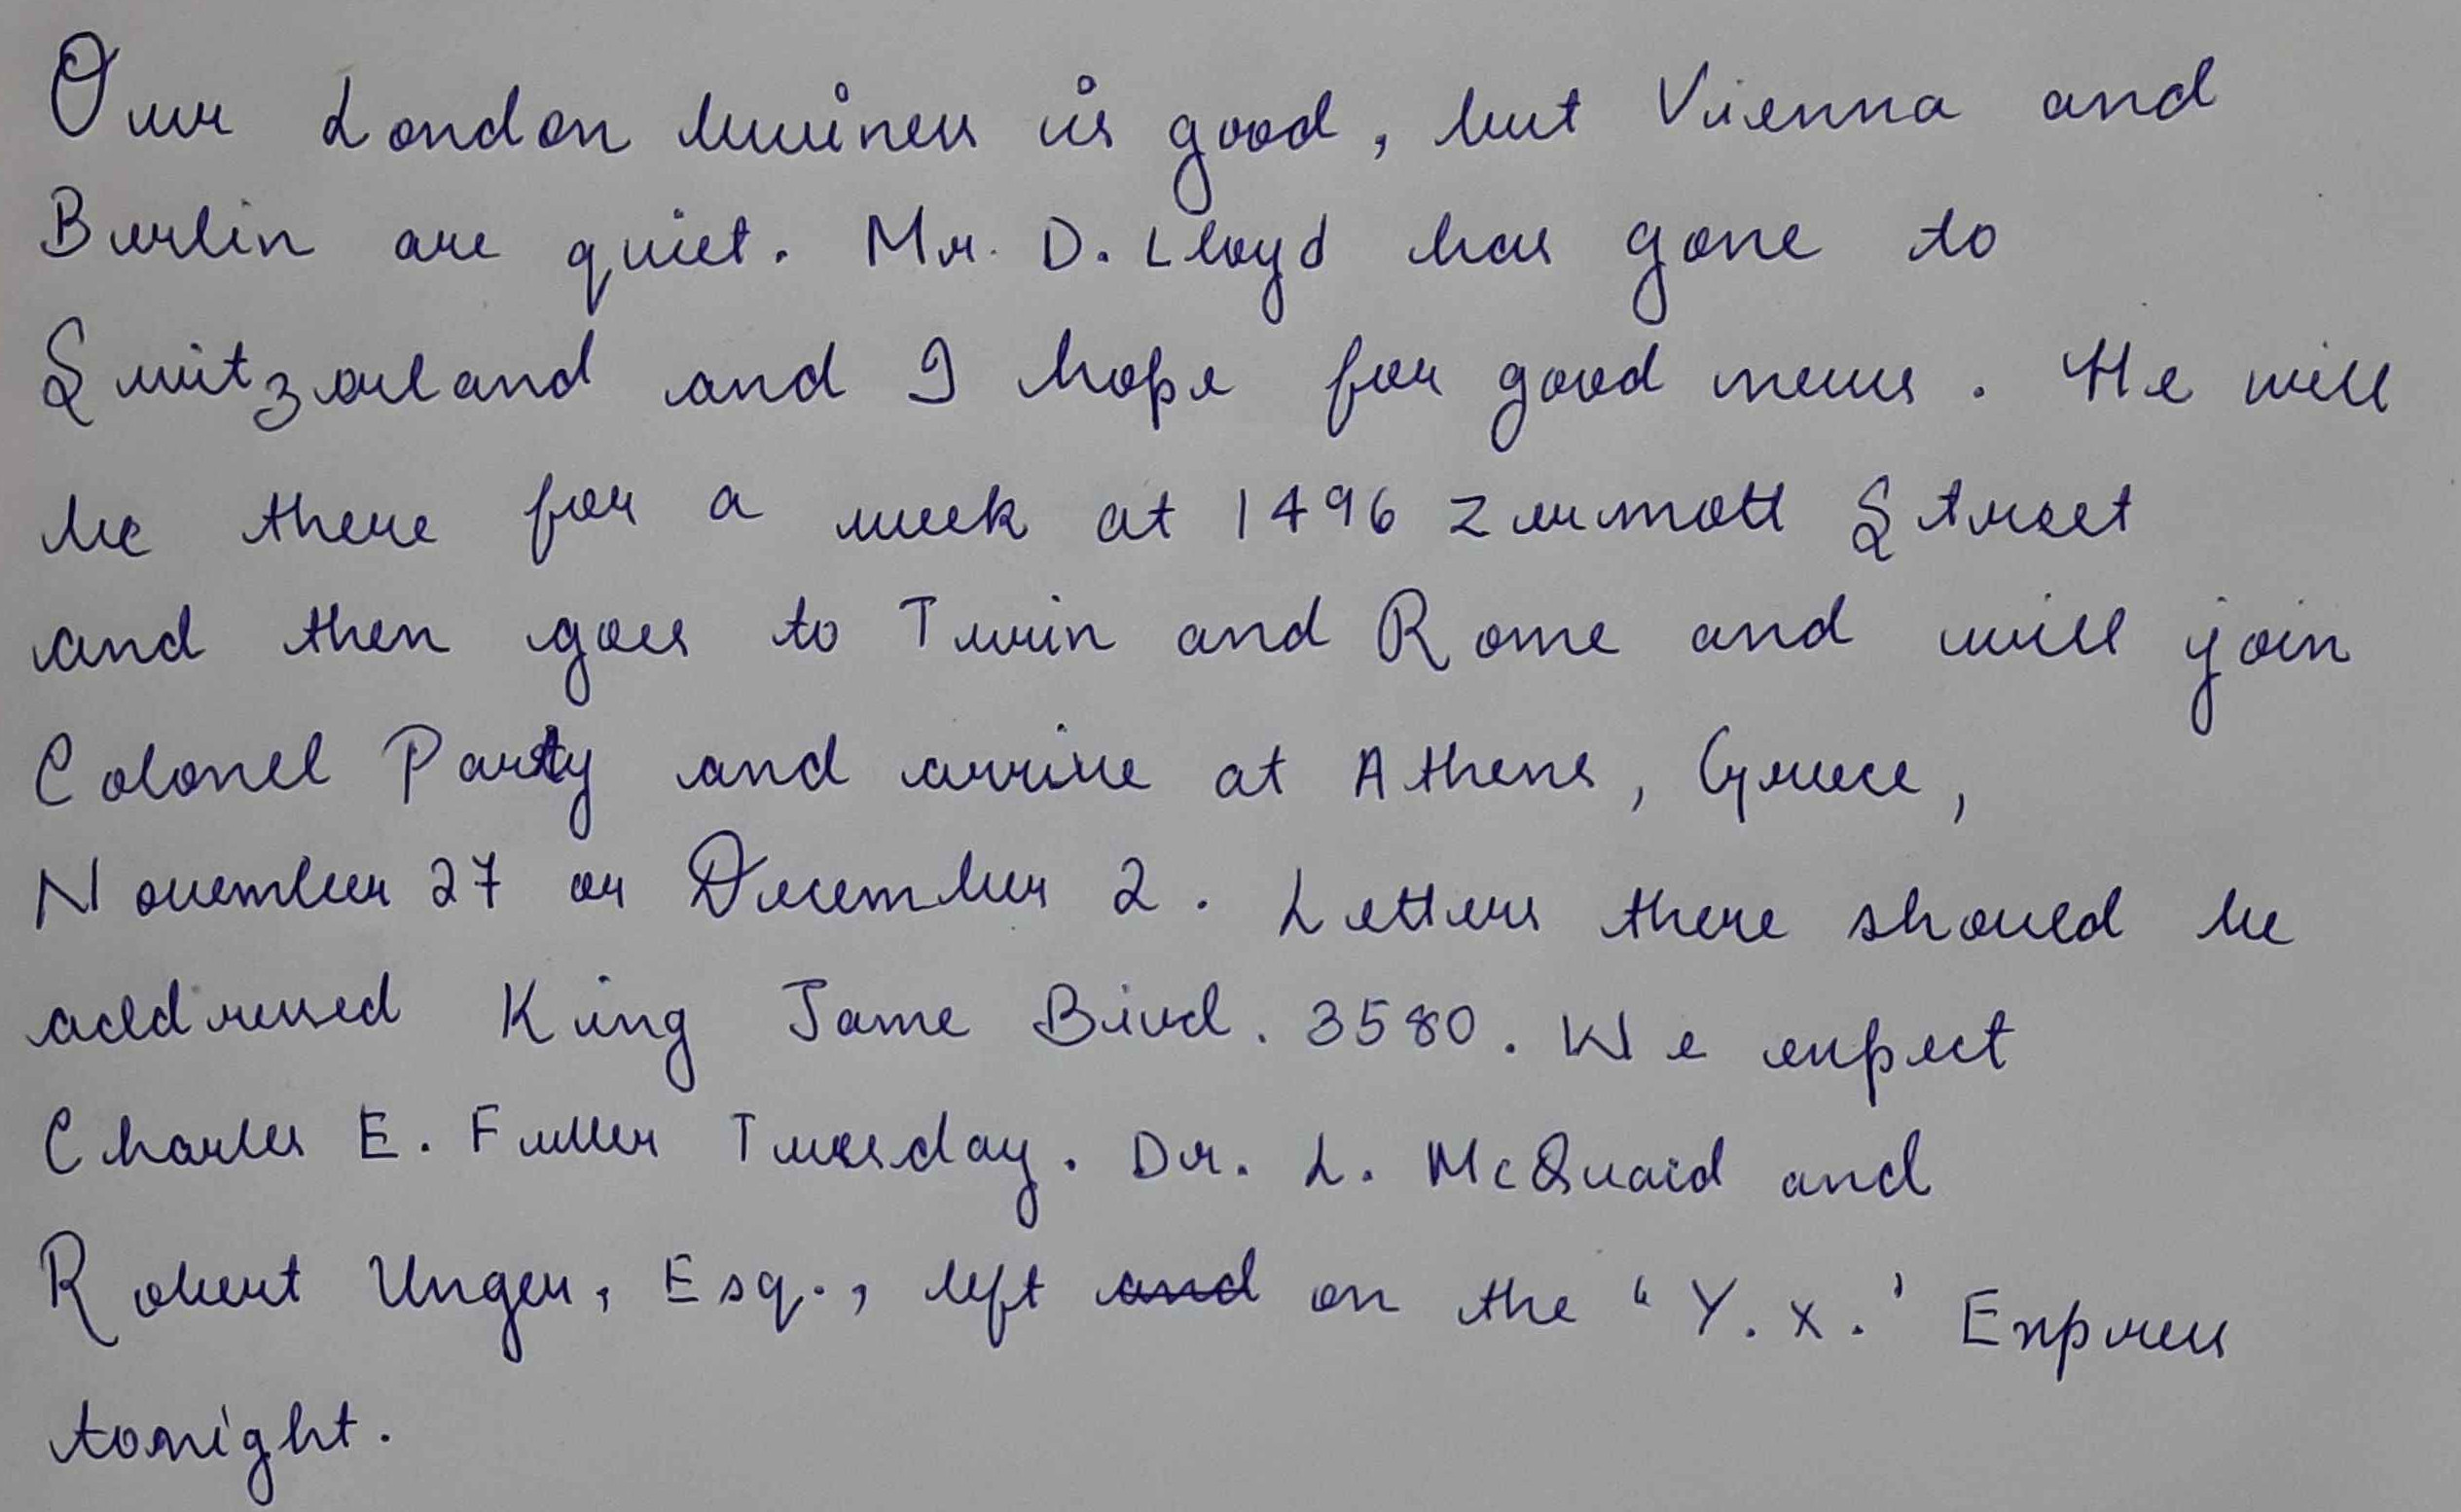 Our London business is good, but Vienna and
Berlin are quiet. Mr. D. Lloyd has gone to
Switzerland and I hope for good news. He will
be there for a week at 1496 Zermott Street
and then goes to Turin and Rome and will join
Colonel Party and arrive at Athens, Greece,
November 27 or December 2. Letters there should be
addressed King Jame Bivd. 3580. We expect
Charles E. Fuller Tuesday. Dr. L. McQuaid and
Robert Unger, Esq., left and on the "Y. X.' Express
tonight.